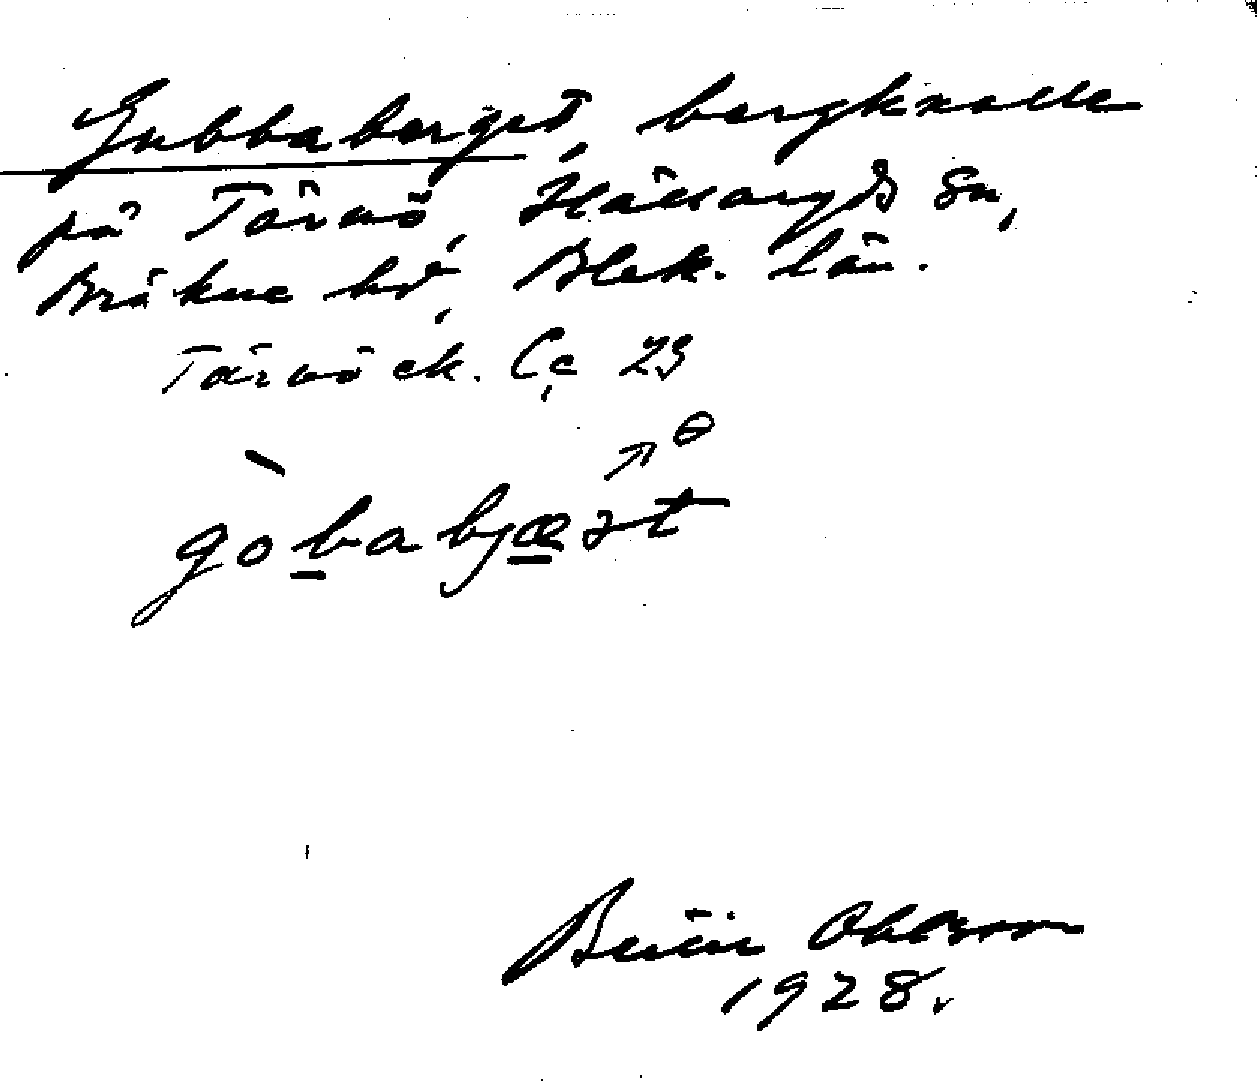 Gubbaberget, bergknalle
på Tärnö, Hällaryds sn,
Bräkne hd, Blek. län.
Tärnö ek. Cc 23
gòbabjæret
Ohlsson
1928.